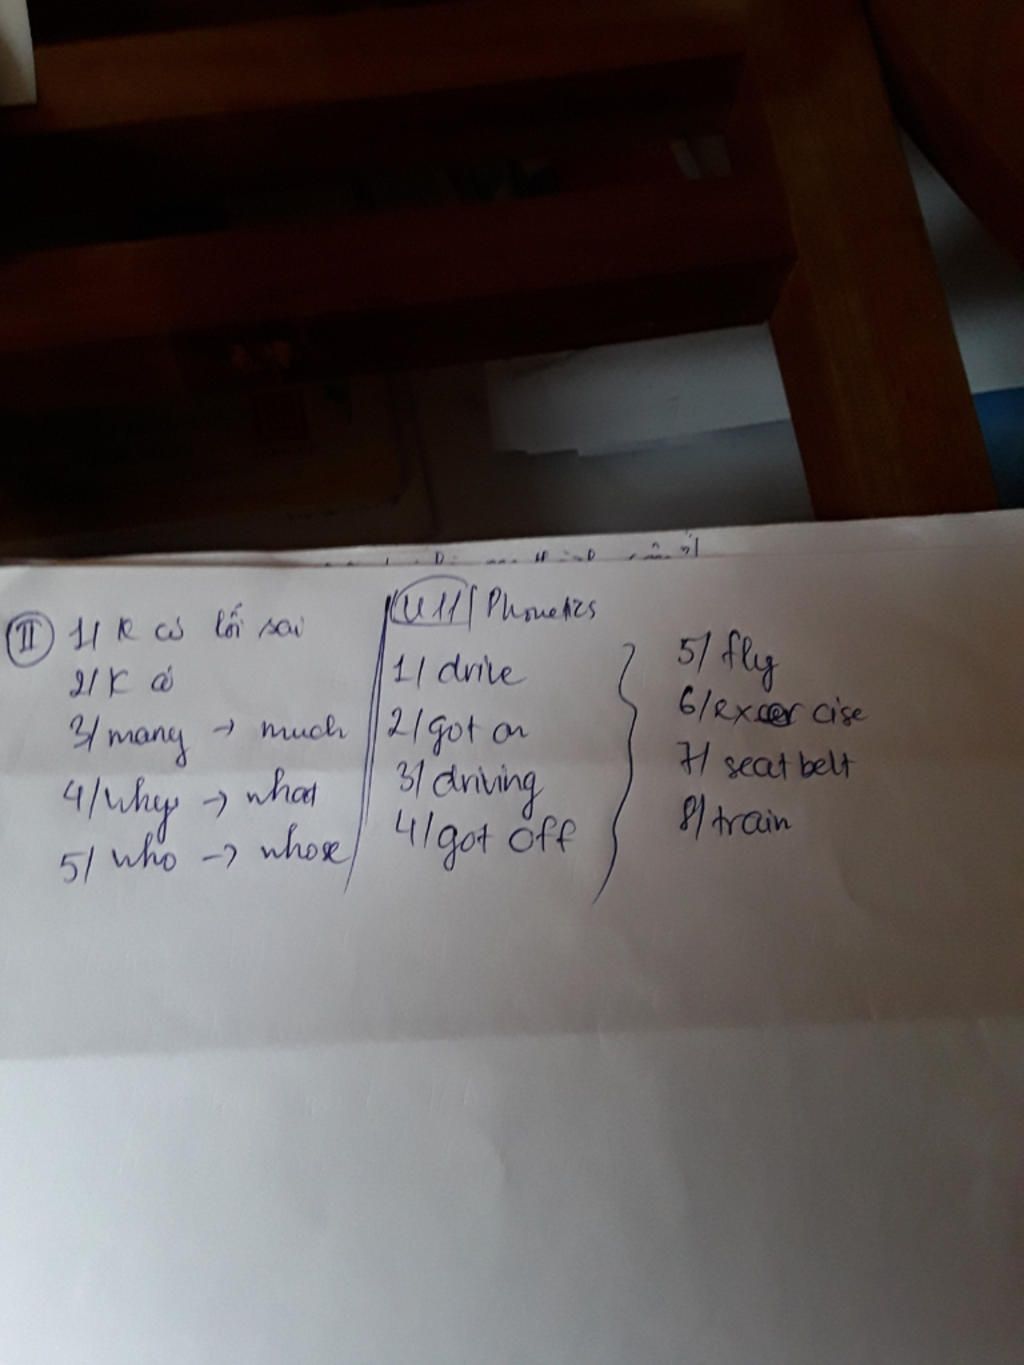 II 1/ K có lỗi sai
2/ K có
3/ many → much
4/ why → what
5/ who → whose
U11 Phonetics
1/ drive
2/ got on
3/ driving
4/ got off
5/ fly
6/ excercise
7/ seatbelt
8/ train